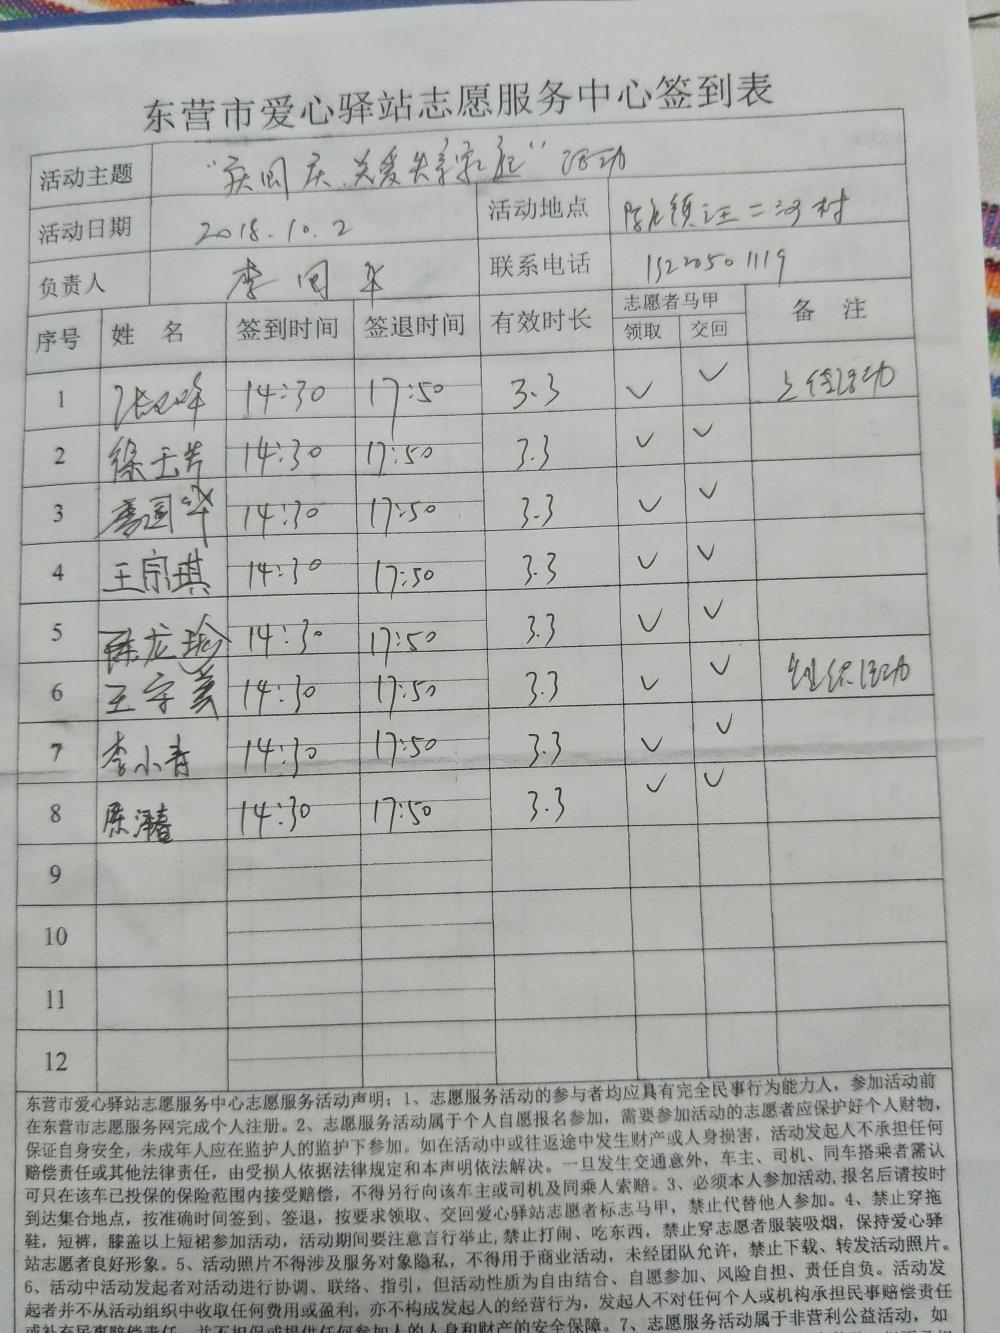 东营市爱心驿站志愿服务中心签到表
活动主题 “庆国庆、关爱失亲家庭”活动
活动日期 2018.10.2 活动地点 镇汪二河村
负责人 李国华 联系电话 15220501119
序号 姓 名 签到时间 签退时间 有效时长 志愿者马甲 备 注
领取 交回
1 14:30 17:50 3.3 ✓ ✓ 上传活动
2 徐玉芳 14:30 17:50 3.3 ✓ ✓
3 李国华 14:30 17:50 3.3 ✓ ✓
4 王宗琪 14:30 17:50 3.3 ✓ ✓
5 陈龙瑜 14:30 17:50 3.3 ✓ ✓
6 王守美 14:30 17:50 3.3 ✓ ✓ 组织活动
7 李小青 14:30 17:50 3.3 ✓ ✓
8 陈泽春 14:30 17:50 3.3 ✓ ✓
9
10
11
12
东营市爱心驿站志愿服务中心志愿服务活动声明：1、志愿服务活动的参与者均应具有完全民事行为能力人，参加活动前
在东营市志愿服务网完成个人注册。2、志愿服务活动属于个人自愿报名参加，需要参加活动的志愿者应保护好个人财物，
保证自身安全，未成年人应在监护人的监护下参加。如在活动中或往返途中发生财产或人身损害，活动发起人不承担任何
赔偿责任或其他法律责任，由受损人依据法律规定和本声明依法解决。一旦发生交通意外，车主、司机、同车搭乘者需认
可只在该车已投保的保险范围内接受赔偿，不得另行向该车主或司机及同乘人索赔。3、必须本人参加活动,报名后请按时
到达集合地点，按准确时间签到、签退，按要求领取、交回爱心驿站志愿者标志马甲，禁止代替他人参加。4、禁止穿拖
鞋，短裤，膝盖以上短裙参加活动，活动期间要注意言行举止,禁止打闹、吃东西，禁止穿志愿者服装吸烟，保持爱心驿
站志愿者良好形象。5、活动照片不得涉及服务对象隐私，不得用于商业活动，未经团队允许，禁止下载、转发活动照片。
6、活动中活动发起者对活动进行协调、联络、指引，但活动性质为自由结合、自愿参加、风险自担、责任自负。活动发
起者并不从活动组织中收取任何费用或盈利，亦不构成发起人的经营行为，发起人不对任何个人或机构承担民事赔偿责任
或补充民事赔偿责任，并不担保或提供任何参加人的人身和财产的安全保障。7、志愿服务活动属于非营利公益活动，如